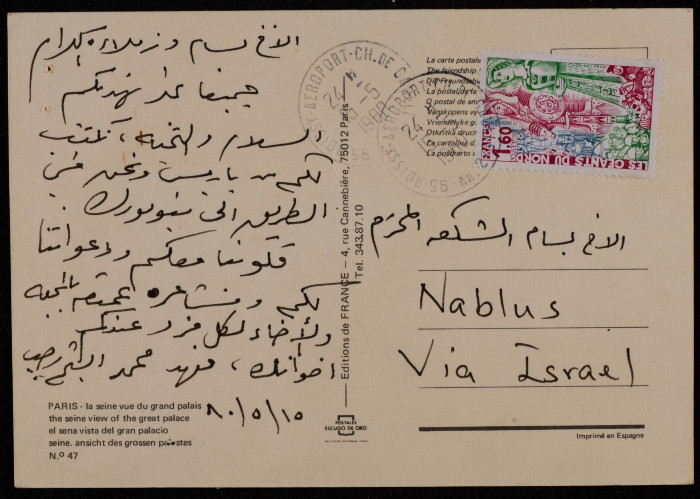 الأخ بسام وزملاءه الكرام
جميعا على نهجكم
السلام والمحبة، نكتب
لكم من باريس ونحن في
الطريق الى نيويورك
قلوبنا معكم ودعواتنا
لكم ومشاعر عميقة بالمحبه
والأخاء لكل فرد عندكم
اخوانك، فهد محمد
٨٠/٥/١٥
PARIS - la seine vue du grand palais
the seine view of the great palace
el sena vista del gran palacio
seine. ansicht des grossen palastes
N.º 47
Editions de FRANCE — 4, rue Cannebière, 75012 Paris
Tel. 343.87.10
POSTALES
ESCUDO DE ORO
La carte postale
The friendship
Die Freundschaft
La postal de la
O postal de am
Vanskopens vy
Vriendelyke g
Otkritka druch
La cartolina d
La postkarto
95 ROISSY-AEROPORT-CH.DE
24
1980
FRANCE
1,60
LES GEANTS DU NORD
الاخ بسام الشكعه المحترم
Nablus
Via Israel
Imprimé en Espagne